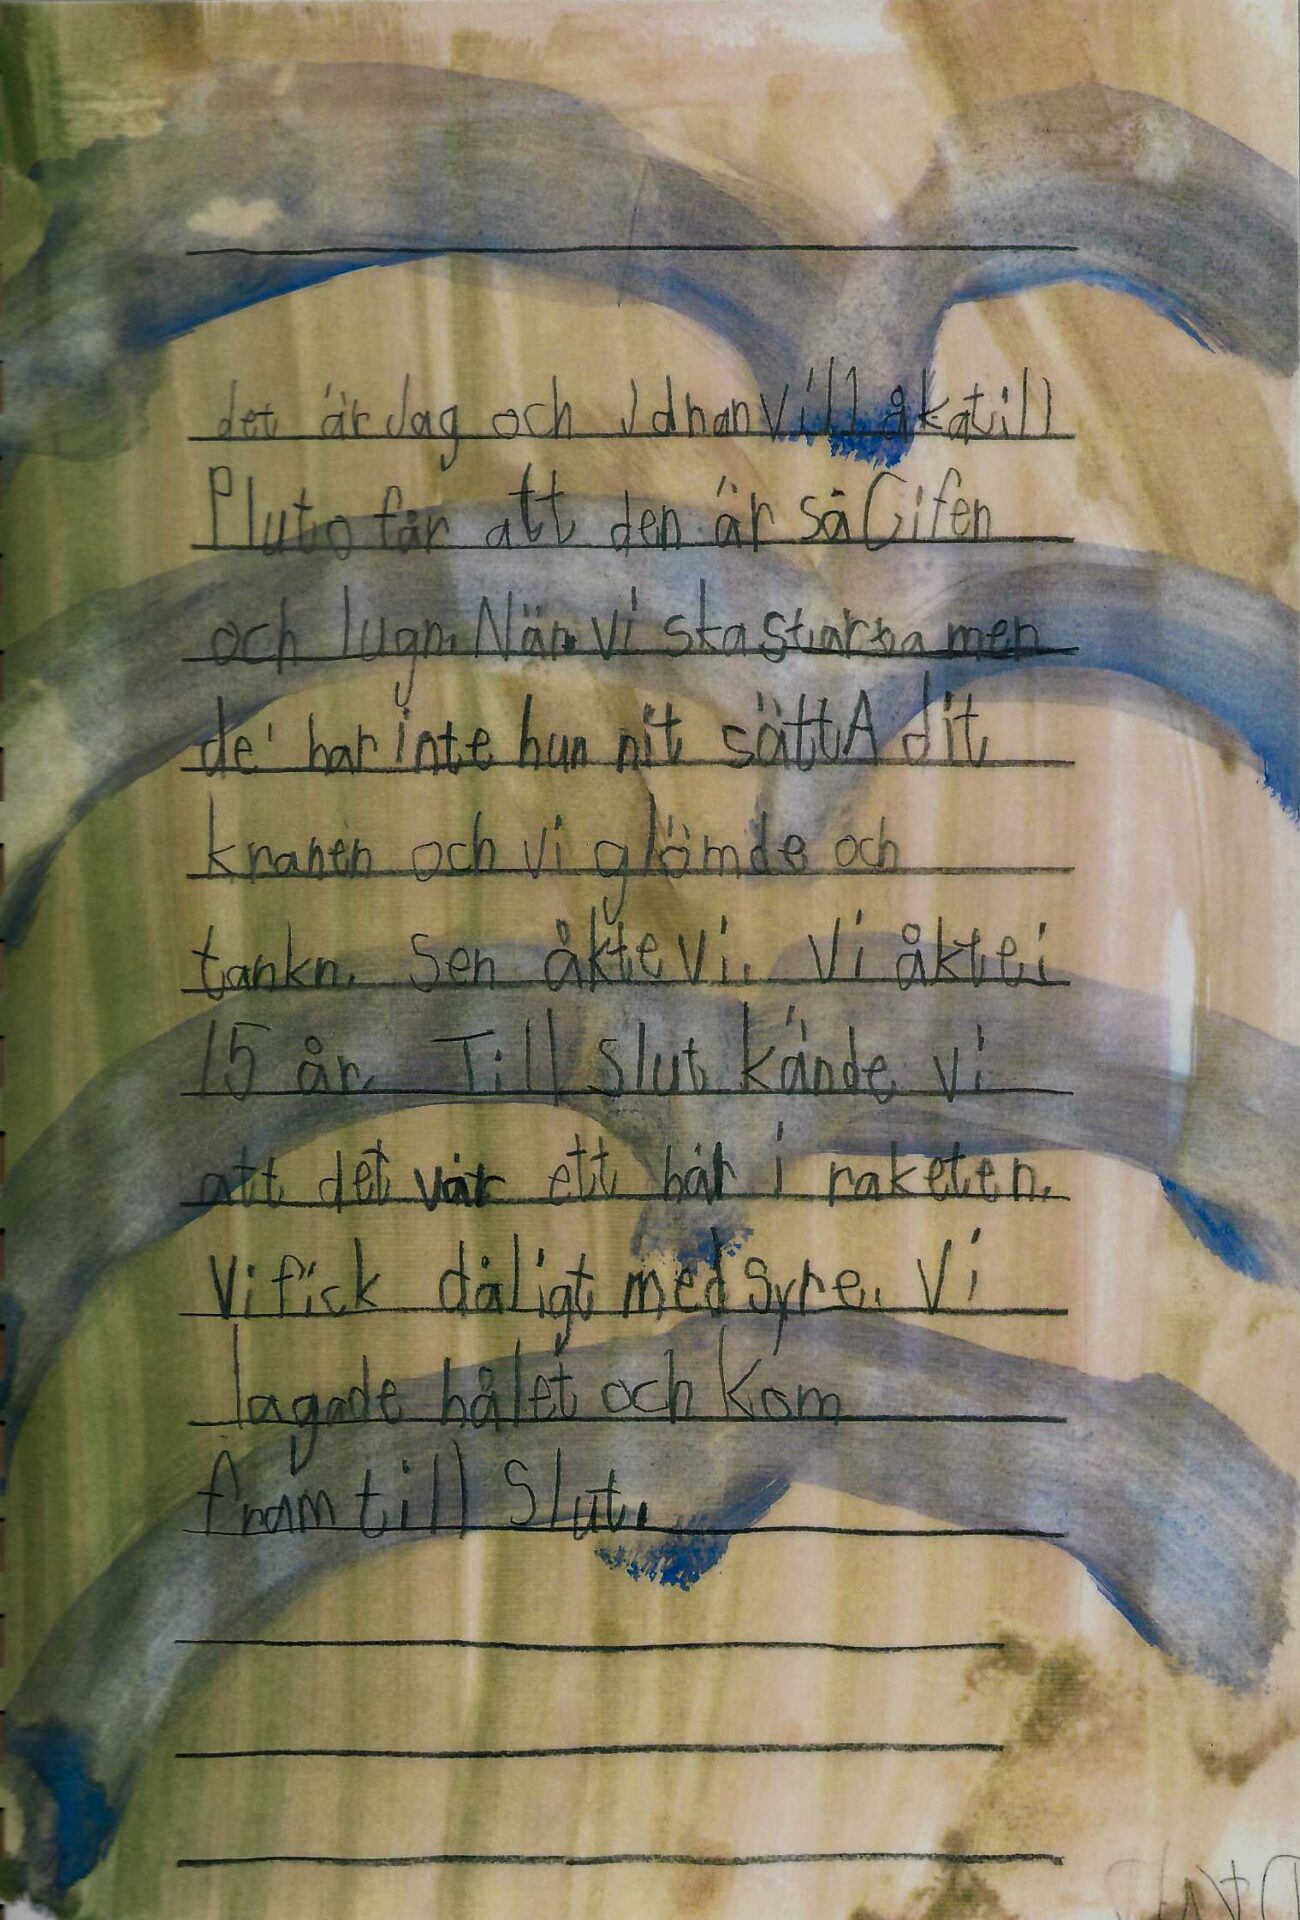 det är Jag och Johan Vill åka till
Pluto får att den är så Gifen
och lugn. När vi ska starta men
de har inte hun nit sättA dit
kranen och vi glömde och
tankn. Sen åkte vi. Vi åkte i
15 år. Till slut kände vi
att det var ett hål i raketen.
Vi fick dåligt med syre. Vi
lagade hålet och Kom
fram till Slut.